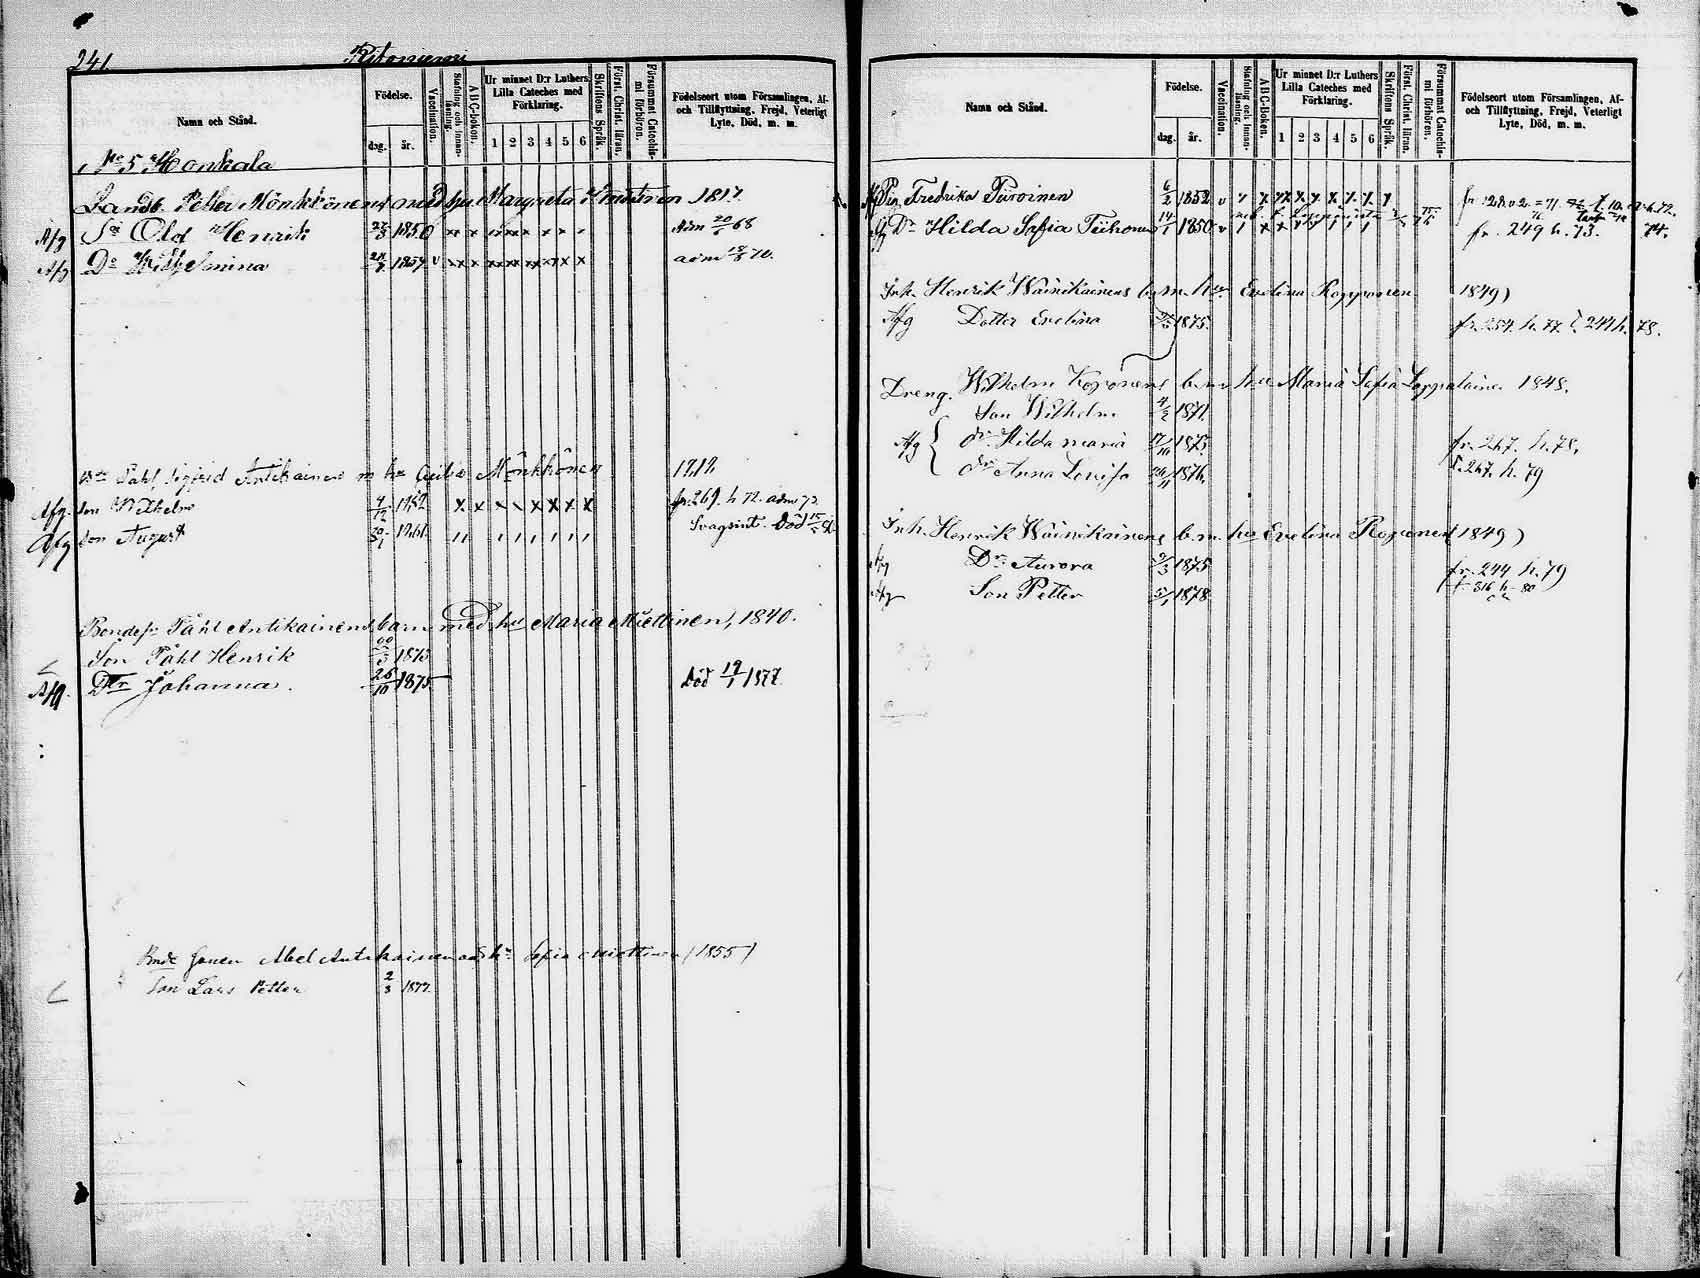 241. Ritoniemi
Namn och Stånd.
Födelse.
dag. år.
Vaccination.
Stafning och Innanläsning.
ABC-boken.
Ur minnet D:r Luthers Lilla Cateches med Förklaring.
1 2 3 4 5 6
Skriftens Språk.
Först. Christ. läran.
Försummat Catechismi förhören.
Födelseort utom Församlingen, Af- och Tillflyttning, Frejd, Veterligt Lyte, Död, m. m.
No 5 Honkala
Landb. Petter Mönkkönens med hu Margareta 1817.
Afg Sn Olof Henrik 1850 Adm 20/6 68
Afg Dr Wilhelmina v adm 18/8 70.
Påhl Sigfrid Antikainen m hu Cecilia Mönkkönen
Afg. Son Wilhelm x x x x x x x x fr. 269. h 72. adm 72
Afg Son August 30/1 1861 Svagsint. Död
Bondes. Påhl Antikainens barn med hu Maria Miettinen, 1840.
Son Påhl Henrik 1873
Afg. Dtr Johanna. 26/10 1875 Död 19/1 1877.
Abel Antikainen och hu Sofia Miettinen (1855)
Son Lars Petter 2/3 1877.
Namn och Stånd.
Födelse.
dag. år.
Vaccination.
Stafning och Innanläsning.
ABC-boken.
Ur minnet D:r Luthers Lilla Cateches med Förklaring.
1 2 3 4 5 6
Skriftens Språk.
Först. Christ. läran.
Försummat Catechismi förhören.
Födelseort utom Församlingen, Af- och Tillflyttning, Frejd, Veterligt Lyte, Död, m. m.
Pig. Fredrika Piiroinen 6/2 1852 v
Afg Dr Hilda Sofia Tiihonen 14/1 1850 v fr. 249 h. 73. 74.
Inh. Henrik Wäinikainens b. m. hu Evelina Ropponen 1849)
Afg Dotter Evelina 1875. fr. 254. h. 77. t. 244 h. 78.
Dreng. Wilhelm Koponens b. m. hu Maria Sofia Lappalainen 1848.
Son Wilhelm 4/2 1871.
Afg { dr Hilda Maria 17/10 1873 fr. 267. h. 78.
dr Anna Lovisa 1876. t. 267. h. 79
Inh. Henrik Wäinikainens b. m. hu Evelina Roponen (1849)
Afg Dr Aurora 9/3 1875 fr. 244 h. 79
Afg Son Petter 5/1 1878 t 316 h 80